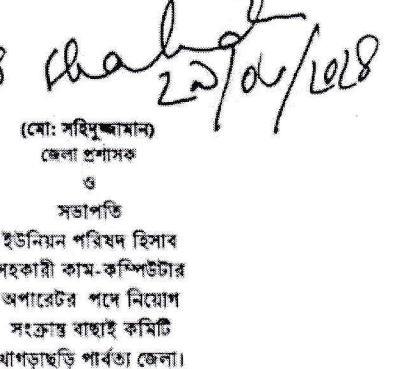 ২৯/০৮/২০২৪
(মো: সহিদুজ্জামান)
জেলা প্রশাসক
ও
সভাপতি
ইউনিয়ন পরিষদ হিসাব
সহকারী কাম-কম্পিউটার
অপারেটর পদে নিয়োগ
সংক্রান্ত বাছাই কমিটি
খাগড়াছড়ি পার্বত্য জেলা।